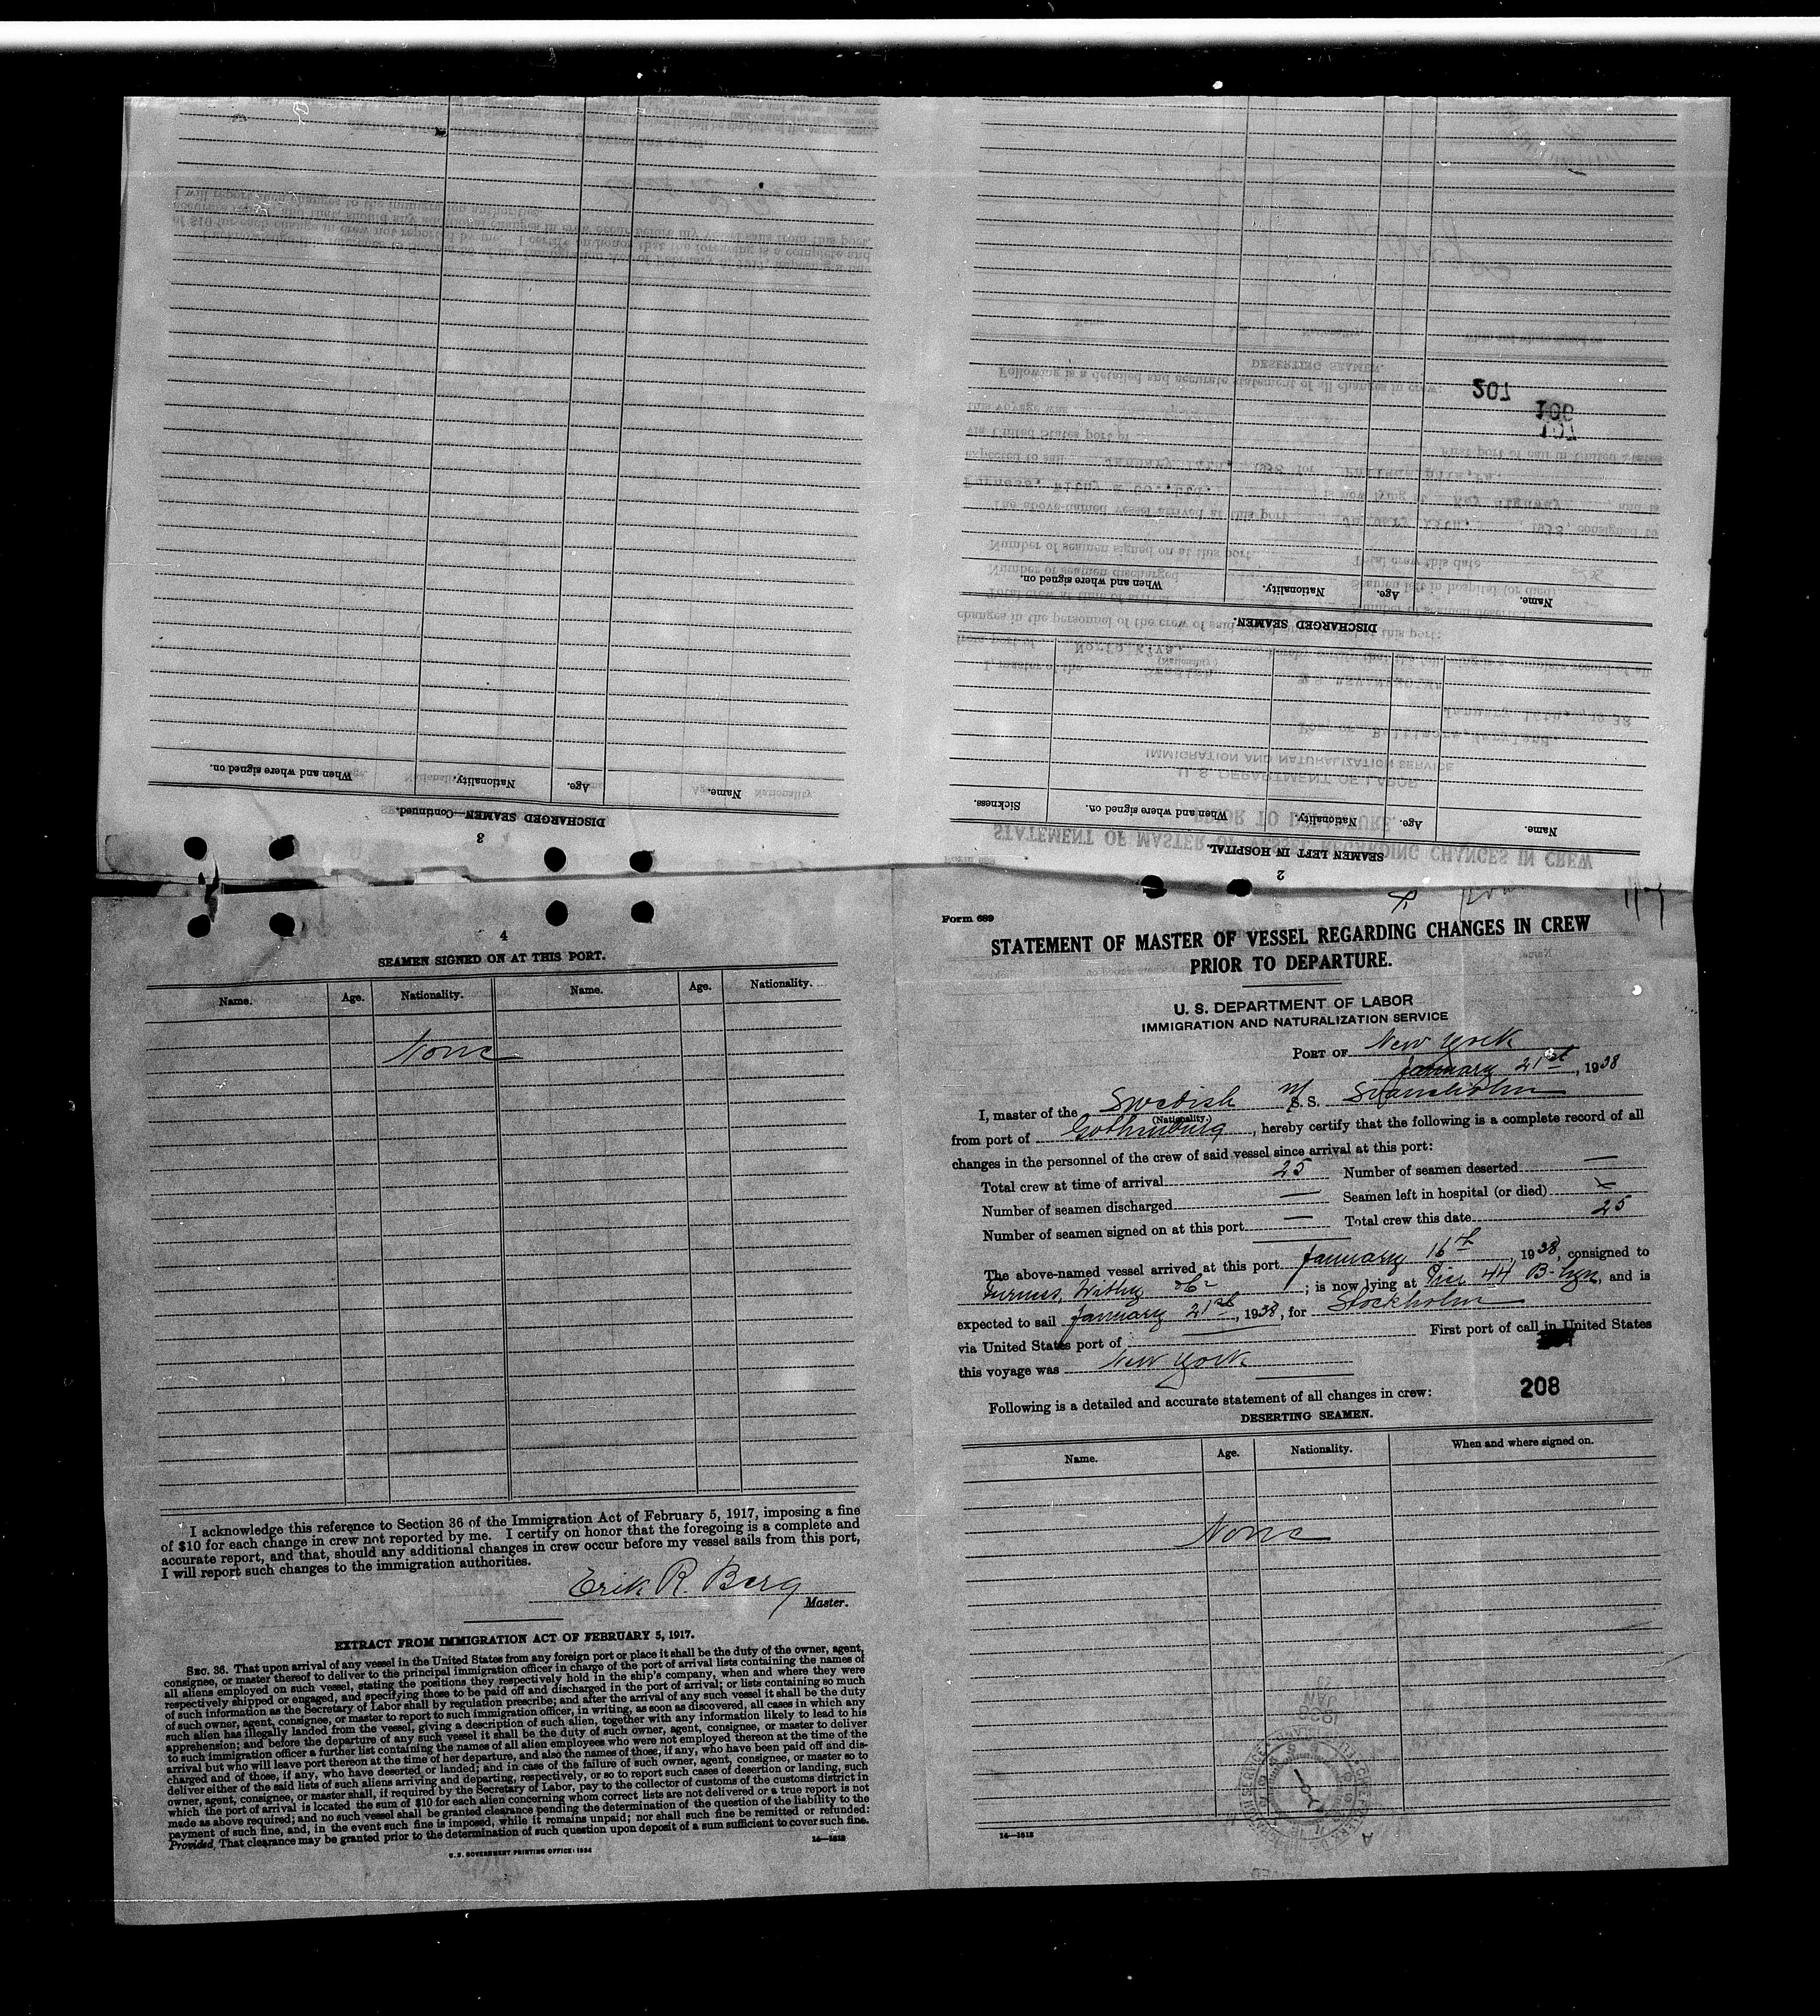 Form 689
STATEMENT OF MASTER OF VESSEL REGARDING CHANGES IN CREW
PRIOR TO DEPARTURE.
U. S. DEPARTMENT OF LABOR
IMMIGRATION AND NATURALIZATION SERVICE
PORT OF New York
January 21st, 1938
I, master of the Swedish M/S. S. Svaneholm
(Nationality.)
from port of Gothenburg, hereby certify that the following is a complete record of all
changes in the personnel of the crew of said vessel since arrival at this port:
Total crew at time of arrival 25 Number of seamen deserted —
Number of seamen discharged — Seamen left in hospital (or died)
Number of seamen signed on at this port — Total crew this date 25
The above-named vessel arrived at this port January 16th, 1938, consigned to
Furness, Withy & Co; is now lying at Pier 44 B-lyn, and is
expected to sail January 21st, 1938, for Stockholm
via United States port of — First port of call in United States
this voyage was New York
Following is a detailed and accurate statement of all changes in crew:
208
DESERTING SEAMEN.
Name. Age. Nationality. When and where signed on.
None
14—1613
2
SEAMEN LEFT IN HOSPITAL.
Name. Age. Nationality. When and where signed on. Sickness.
DISCHARGED SEAMEN.
Name. Age. Nationality. When and where signed on.
207
106
107
3
DISCHARGED SEAMEN—Continued.
Name. Age. Nationality. When and where signed on.
4
SEAMEN SIGNED ON AT THIS PORT.
Name. Age. Nationality. Name. Age. Nationality.
None
I acknowledge this reference to Section 36 of the Immigration Act of February 5, 1917, imposing a fine
of $10 for each change in crew not reported by me. I certify on honor that the foregoing is a complete and
accurate report, and that, should any additional changes in crew occur before my vessel sails from this port,
I will report such changes to the immigration authorities.
Erik R. Berg
Master.
EXTRACT FROM IMMIGRATION ACT OF FEBRUARY 5, 1917.
SEC. 36. That upon arrival of any vessel in the United States from any foreign port or place it shall be the duty of the owner, agent,
consignee, or master thereof to deliver to the principal immigration officer in charge of the port of arrival lists containing the names of
all aliens employed on such vessel, stating the positions they respectively hold in the ship's company, when and where they were
respectively shipped or engaged, and specifying those to be paid off and discharged in the port of arrival; or lists containing so much
of such information as the Secretary of Labor shall by regulation prescribe; and after the arrival of any such vessel it shall be the duty
of such owner, agent, consignee, or master to report to such immigration officer, in writing, as soon as discovered, all cases in which any
such alien has illegally landed from the vessel, giving a description of such alien, together with any information likely to lead to his
apprehension; and before the departure of any such vessel it shall be the duty of such owner, agent, consignee, or master to deliver
to such immigration officer a further list containing the names of all alien employees who were not employed thereon at the time of the
arrival but who will leave port thereon at the time of her departure, and also the names of those, if any, who have been paid off and dis-
charged and of those, if any, who have deserted or landed; and in case of the failure of such owner, agent, consignee, or master so to
deliver either of the said lists of such aliens arriving and departing, respectively, or so to report such cases of desertion or landing, such
owner, agent, consignee, or master shall, if required by the Secretary of Labor, pay to the collector of customs of the customs district in
which the port of arrival is located the sum of $10 for each alien concerning whom correct lists are not delivered or a true report is not
made as above required; and no such vessel shall be granted clearance pending the determination of the question of the liability to the
payment of such fine, and, in the event such fine is imposed, while it remains unpaid; nor shall such fine be remitted or refunded:
Provided, That clearance may be granted prior to the determination of such question upon deposit of a sum sufficient to cover such fine.
14—1613
U. S. GOVERNMENT PRINTING OFFICE: 1934